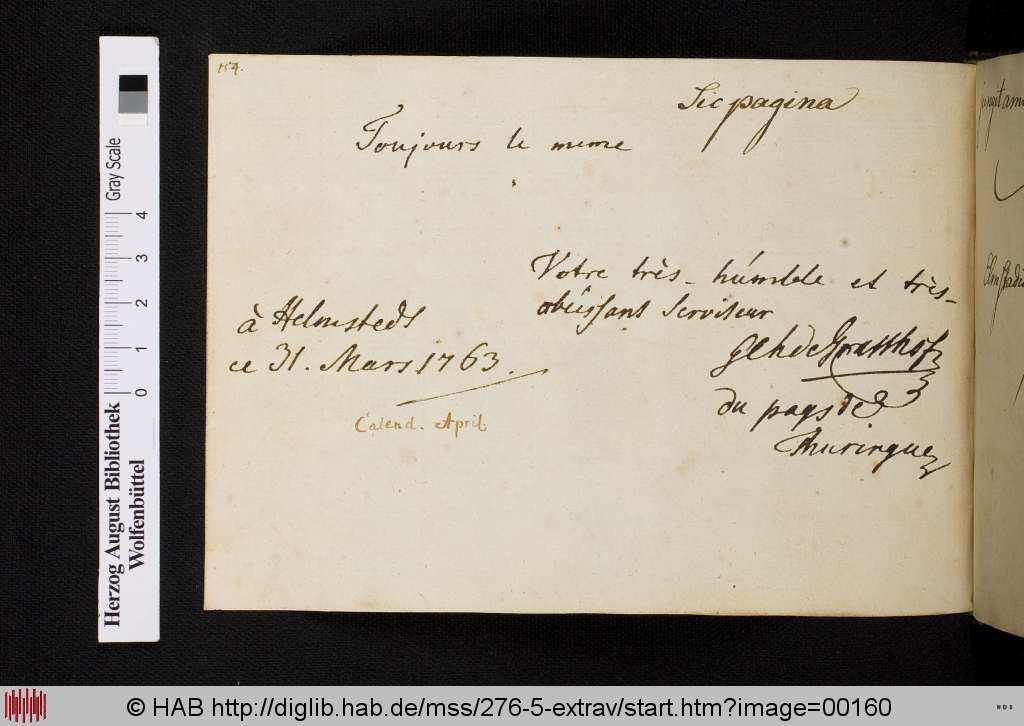 154.
Sic pagina
Toujours le meme
Votre très-húmble et très-
obéissant Serviteur
à Helmstedt
ce 31. Mars 1763.
Calend. April.
Grasshof
du pays de
Thuringue
Herzog August Bibliothek
Wolfenbüttel
Gray Scale
0 1 2 3 4
© HAB http://diglib.hab.de/mss/276-5-extrav/start.htm?image=00160
HAB